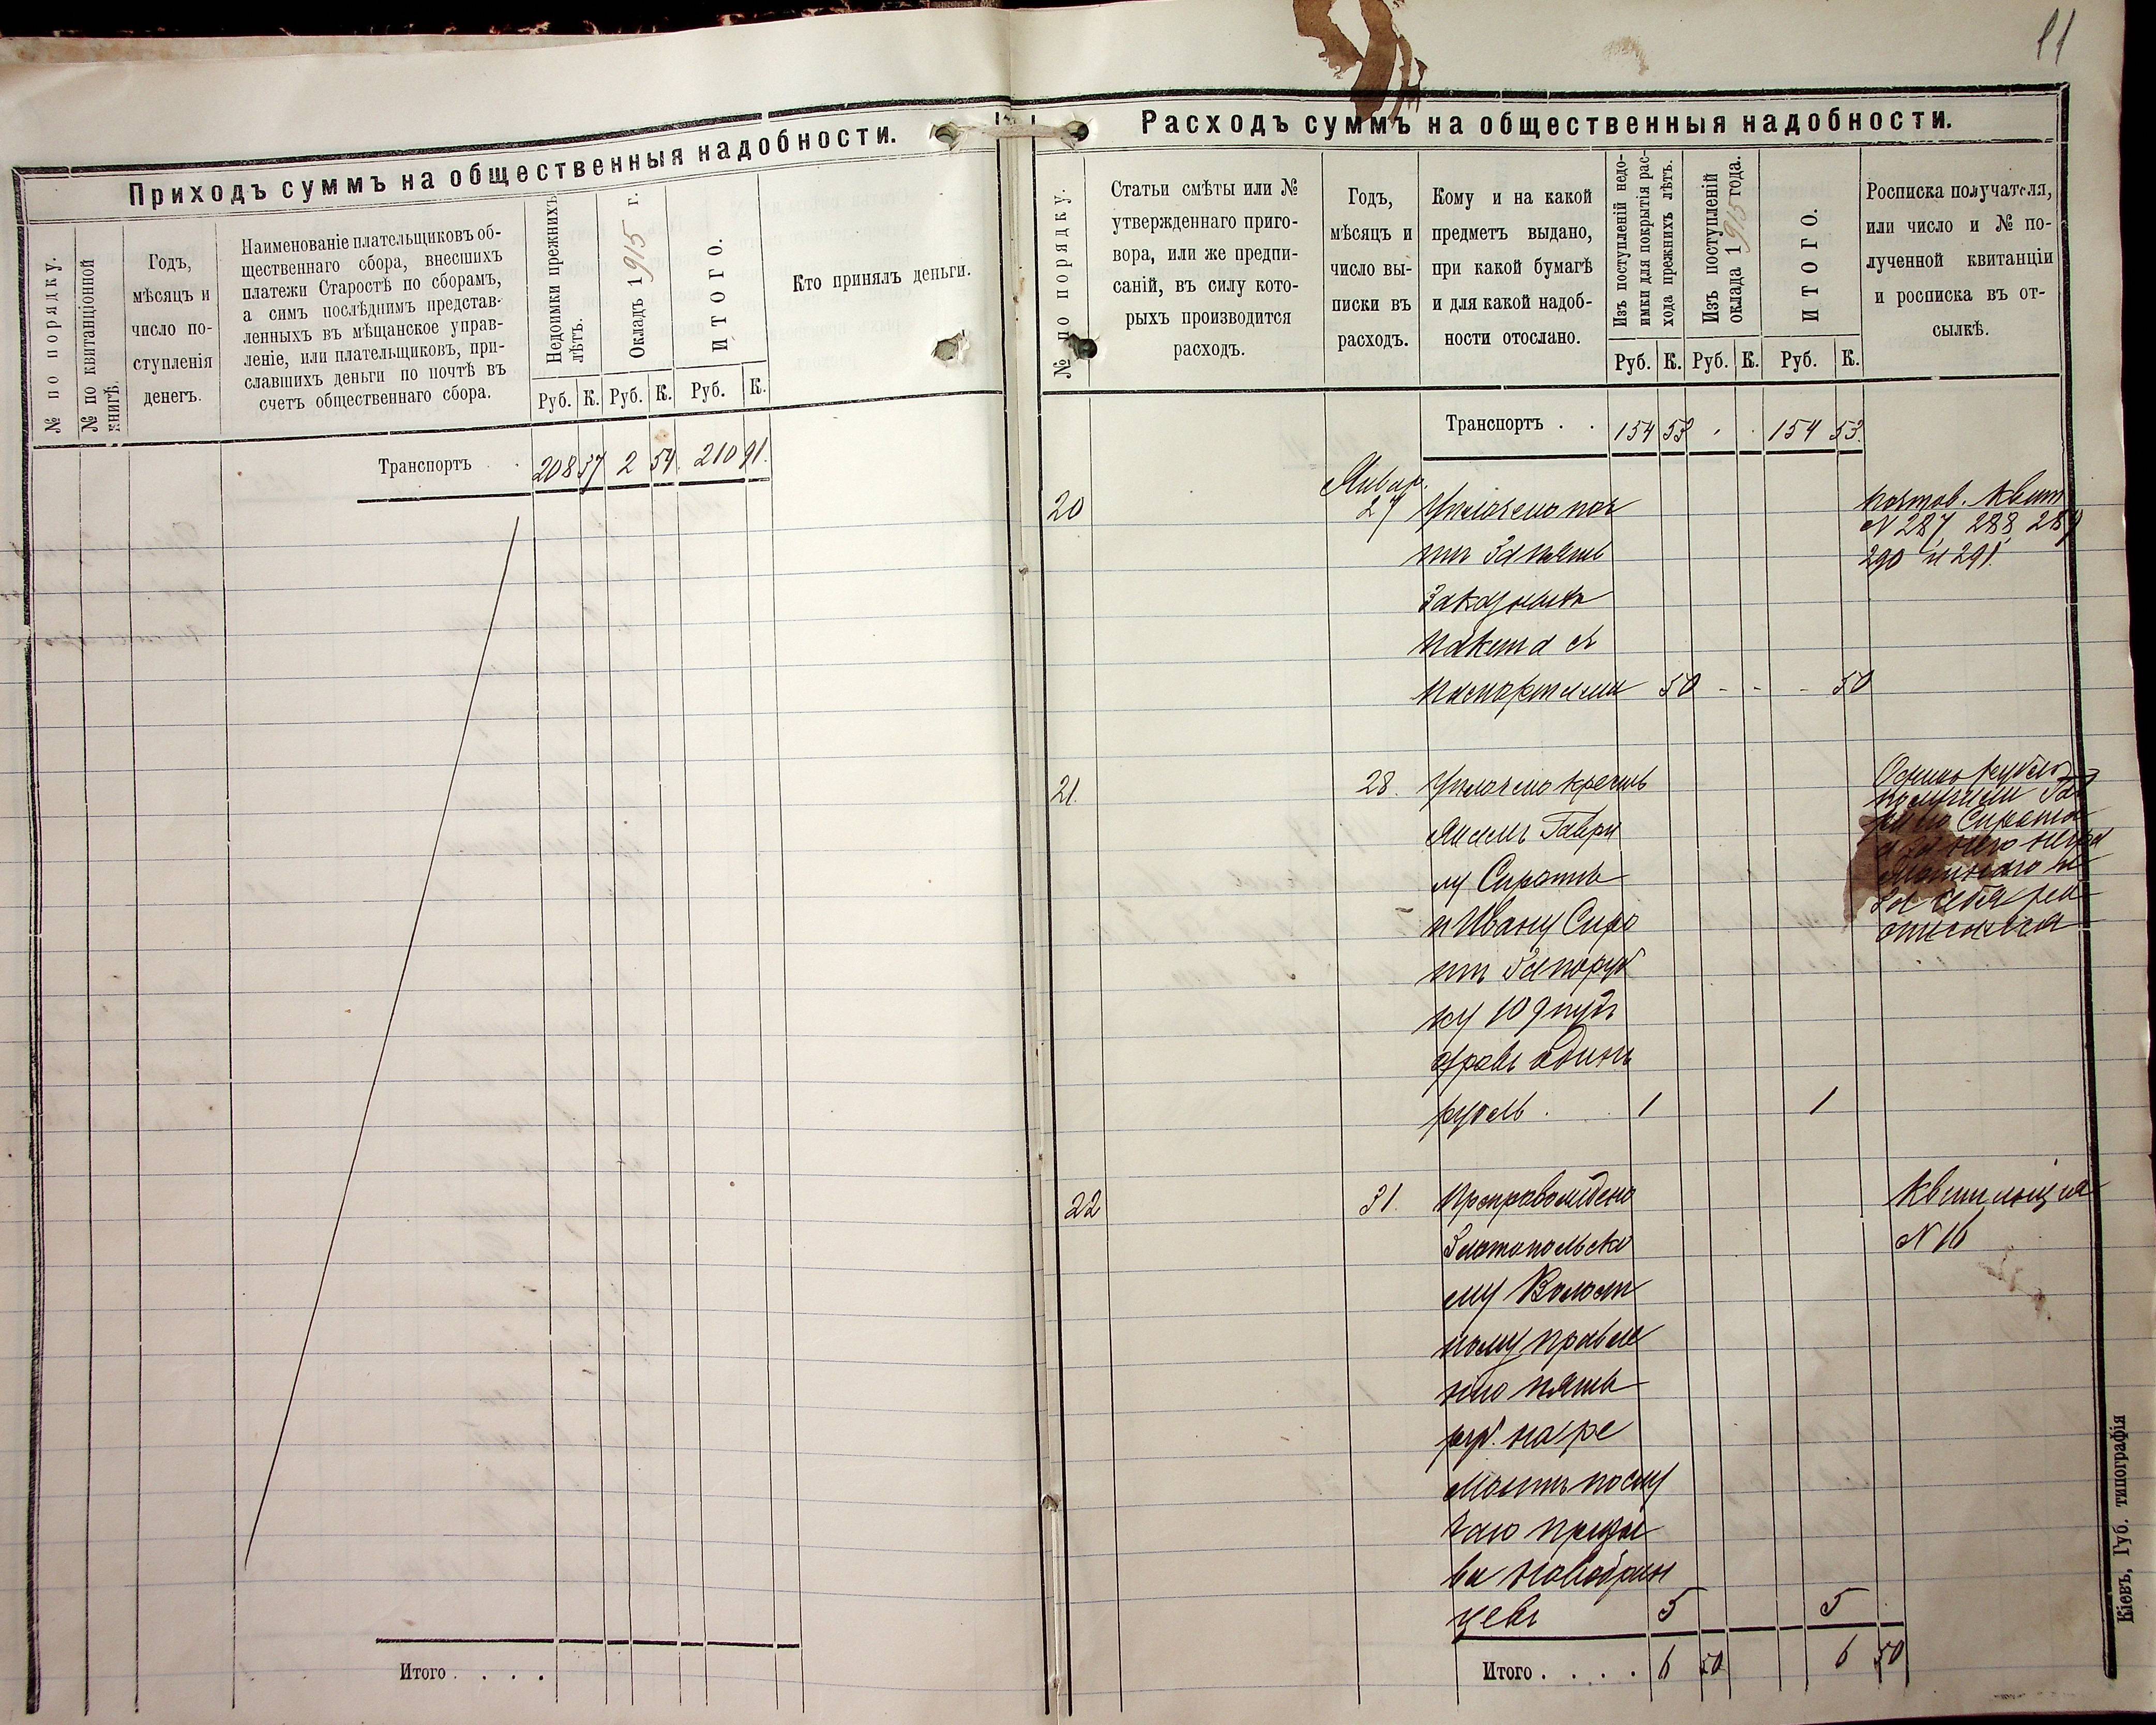 11
Приходъ суммъ на общественныя надобности.
№ по порядку.
№ по квитанціонной
книгѣ.
Годъ,
мѣсяцъ и
число по-
ступленія
денегъ.
Наименованіе плательщиковъ об-
щественнаго сбора, внесшихъ
платежи Старостѣ по сборамъ,
а симъ послѣднимъ представ-
ленныхъ въ мѣщанское управ-
леніе, или плательщиковъ, при-
славшихъ деньги по почтѣ въ
счетъ общественнаго сбора.
Недоимки прежнихъ
лѣтъ.
Окладъ 1915 г.
ИТОГО.
Руб. К. Руб. К. Руб. К.
Кто принялъ деньги.
Транспортъ . 208 37 2 54 210 91.
Итого . . . .
Расходъ суммъ на общественныя надобности.
№ по порядку.
Статьи смѣты или №
утвержденнаго приго-
вора, или же предпи-
саній, въ силу кото-
рыхъ производится
расходъ.
Годъ,
мѣсяцъ и
число вы-
писки въ
расходъ.
Кому и на какой
предметъ выдано,
при какой бумагѣ
и для какой надоб-
ности отослано.
Изъ поступленій недо-
имки для покрытія рас-
хода прежнихъ лѣтъ.
Изъ поступленій
оклада 1915 года.
ИТОГО.
Руб. К. Руб. К. Руб. К.
Росписка получателя,
или число и № по-
лученной квитанціи
и росписка въ от-
сылкѣ.
Транспортъ . . 154 53 . . 154 53.
Январ.
20 27 Уплочено поч
тѣ за пять
заказныхъ
пакета съ
паспортами 50 - - - 50
почтов. квит
№ 287, 288, 289
290 и 291.
21. 28. Уплочено кресть
янамъ Гаври
лу Сиротѣ
и Ивану Сиро
тѣ за поруб
ку 109 пудъ
дровъ одинъ
рубль . . 1 1
Одинъ рубль
получили Гав
рило Сирота
а за него негра
мотнаго и
за себя рос
писался
22 31. Препровождено
Златопольско
му Волост
ному правле
нію пять
руб. на ре
монтъ по слу
чаю призы
ва новобран
цевъ 5 5
Квитанція
№ 16
Итого . . . . 6 50 6 50
Кіевъ, Губ. типографія